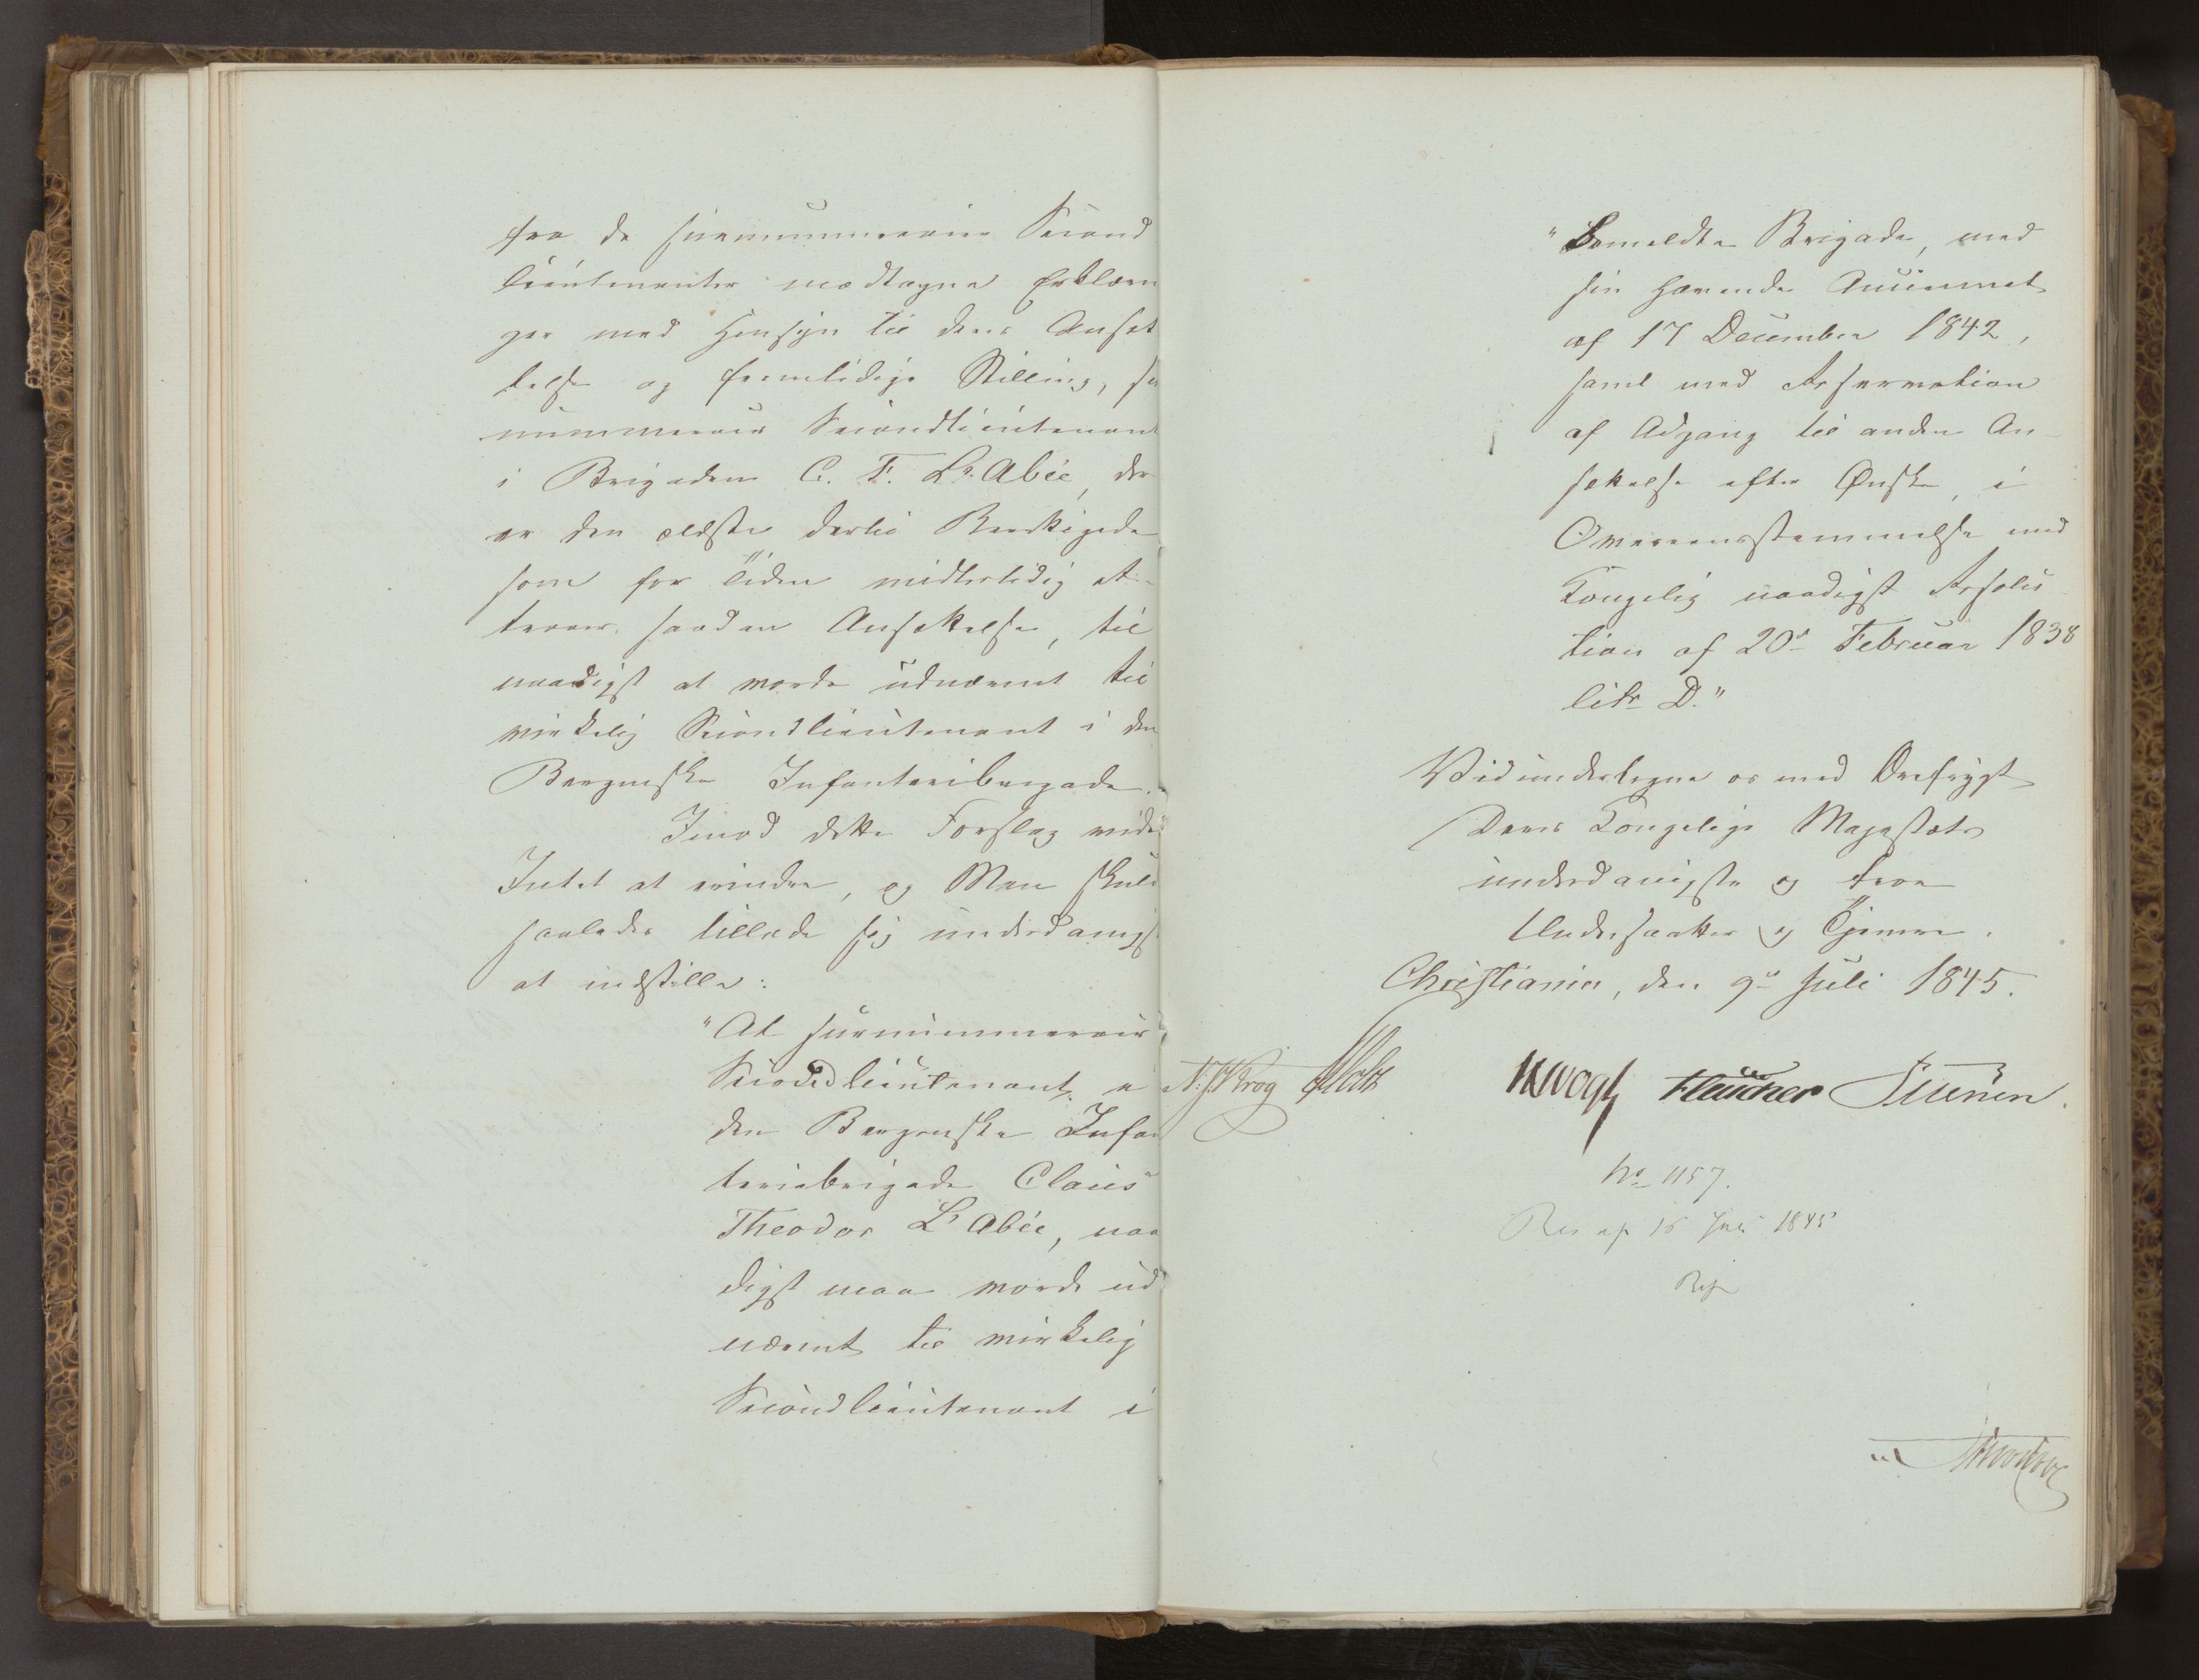 fra de surnummeraire Second
lieutenanter modtagne Erklærin
ger med Hensyn til deres Ansæt
telse og fremtidige Stilling, sur
nummerair Secondlieutenant
i Brigaden C. T. L'Abée, der
er den ældste dertil Berettigede
som for Tiden midlertidig at-
traaer saadan Ansættelse, til
naadigst at vorde udnævnt til
virkelig Secondlieutenant i den
Bergenske Infanteribrigade.
Imod dette Forslag vides
Intet at erindre, og Man skulde
saaledes tillade sig underdanigst
at indstille:
"At surnummerair
Secondlieutenant i
den Bergenske Infan
teriebrigade Claus
Theodor L'Abée, naa
digst maa vorde ud
nævnt til virkelig
Secondlieutenant i
"bemeldte Brigade, med
sin havende Anciennet
af 17 December 1842,
samt med Reservation
af Adgang til anden An-
sættelse efter Ønske, i
Overeensstemmelse med
Kongelig naadigst Resolu
tion af 20de Februar 1838
litr D."
Vi undertegne os med Ærefrygt
Deres Kongelige Majestæts
underdanigste og troe
Undersaatter og Tjenere.
Christiania, den 9de Juli 1845.
N. J. Krog Holst Vogt Fleischer Sibbern
No 1157.
Res af 16 Juli 1845